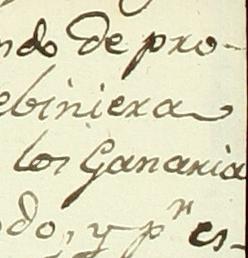 ndo de pro-
ebiniera
los Ganaria
odo, y pr es-